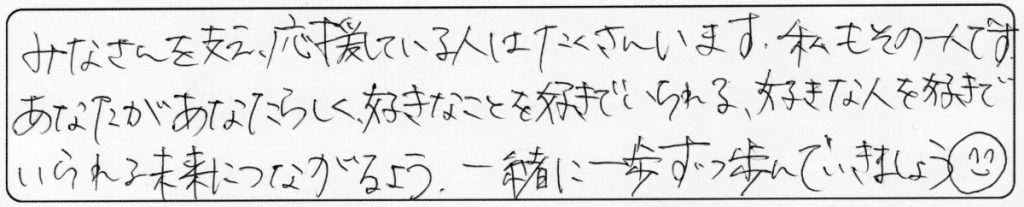 みなさんを支え、応援している人はたくさんいます。私もその一人です
あなたがあなたらしく、好きなことを好きでいられる、好きな人を好きで
いられる未来につながるよう、一緒に一歩ずつ歩んでいきましょう